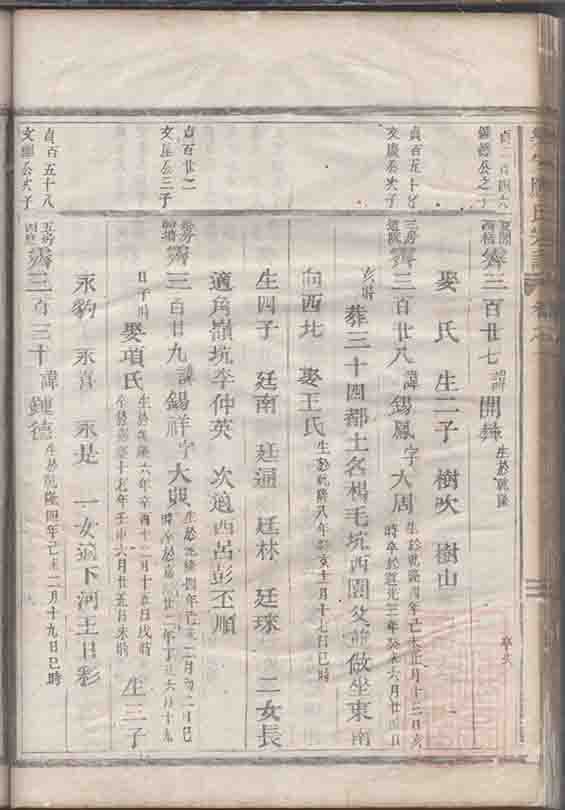 霽三百廿七 諱開 生於乾隆
娶 氏 生二子 樹吹 樹山
貞百五十
文 公次子
三房
霽三百廿八 諱錫鳳 字大周 生於乾隆四年己未正月十三日亥
時卒於道光三年癸未六月廿四日
時
葬三十四都土名楊毛坑西園父前做坐東南
向西北 娶王氏 生於乾隆八年癸亥十二月十七日巳時
生四子 廷南 廷通 廷林 廷球 二女長
適角嶺坑李仲英 次適西呂彭丕順
貞百廿二
文 公三子
霽三百廿九 諱錫祥 字大興 生於乾隆四年己未二月初二日巳
時卒於嘉慶廿二年丁丑六月十九
日子時
娶項氏 生於乾隆六年辛酉十二月十五日戌時
卒於嘉慶十七年壬申六月廿五日未時
生三子
永豹 永喜 永是 一女適下河王日彩
貞百五十八
文 公次子
五房
霽三百三十 諱鍾德 生於乾隆四年己未二月十九日巳時